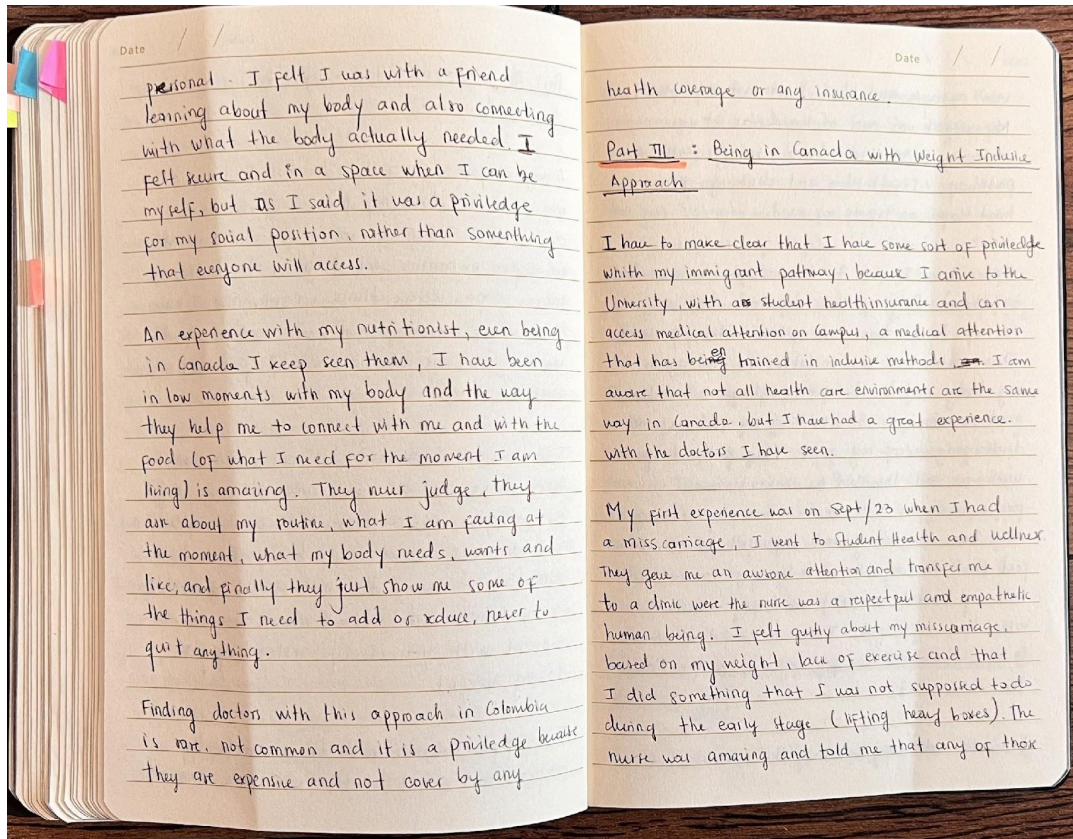 Date / /
personal. I felt I was with a friend
learning about my body and also connecting
with what the body actually needed I
felt secure and in a space when I can be
myself, but as I said it was a priviledge
for my social position, rather than somenthing
that everyone will access.
An experience with my nutritionist, even being
in Canada I keep seen them, I have been
in low moments with my body and the way
they help me to connect with me and with the
food (of what I need for the moment I am
living) is amazing. They never judge, they
ask about my routine, what I am facing at
the moment, what my body needs, wants and
like, and finally they just show me some of
the things I need to add or reduce, never to
quit anything.
Finding doctors with this approach in Colombia
is rare, not common and it is a priviledge because
they are expensive and not cover by any
Date / /
health coverage or any insurance.
Part III : Being in Canada with Weight Inclusive
Approach
I have to make clear that I have some sort of priviledge
whith my immigrant pathway, because I arrive to the
University, with a student health insurance and can
access medical attention on campus, a medical attention
that has been trained in inclusive methods, I am
aware that not all health care environments are the same
way in Canada, but I have had a great experience.
with the doctors I have seen.
My first experience was on Sept/23 when I had
a misscarriage, I went to Student Health and wellness
They gave me an awsone attention and transfer me
to a clinic were the nurse was a respectful and empathetic
human being. I felt guitly about my misscarriage,
based on my weight, lack of exercise and that
I did something that I was not supposed to do
during the early stage (lifting heavy boxes). The
nurse was amazing and told me that any of those